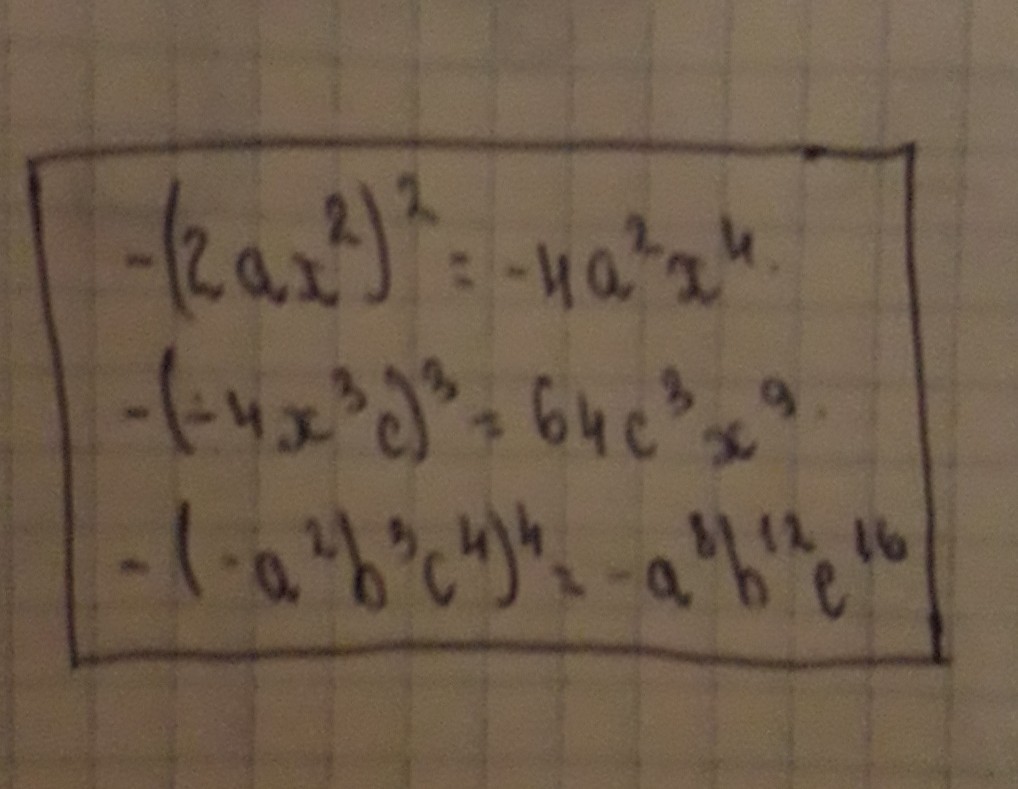 -(2ax²)² = -4a²x⁴.
-(-4x³c)³ = 64c³x⁹.
-(-a²b³c⁴)⁴ = -a⁸b¹²c¹⁶